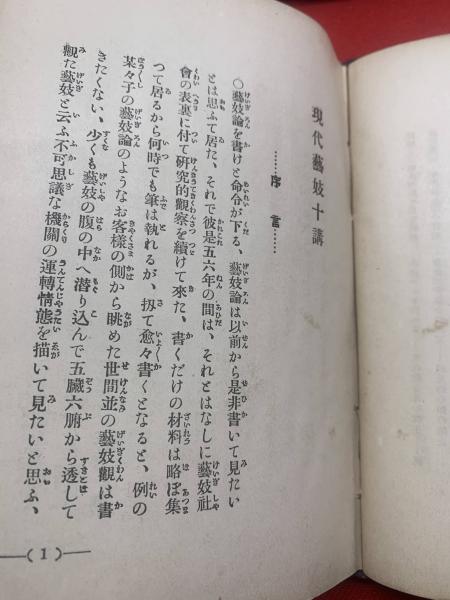 現代藝妓十講
……序言……
○藝妓論を書けと命令が下る、藝妓論は以前から是非書いて見たい
とは思ふて居た、それで彼是五六年の間は、それとはなしに藝妓社
會の表裏に付て研究的觀察を續けて來た、書くだけの材料は略ぼ集
つて居るから何時でも筆は執れるが、扨て愈々書くとなると、例の
某々子の藝妓論のようなお客樣の側から眺めた世間並の藝妓觀は書
きたくない、少くも藝妓の腹の中へ潜り込んで五臟六腑から透して
觀た藝妓と云ふ不可思議な機關の運轉情態を描いて見たいと思ふ、
(1)